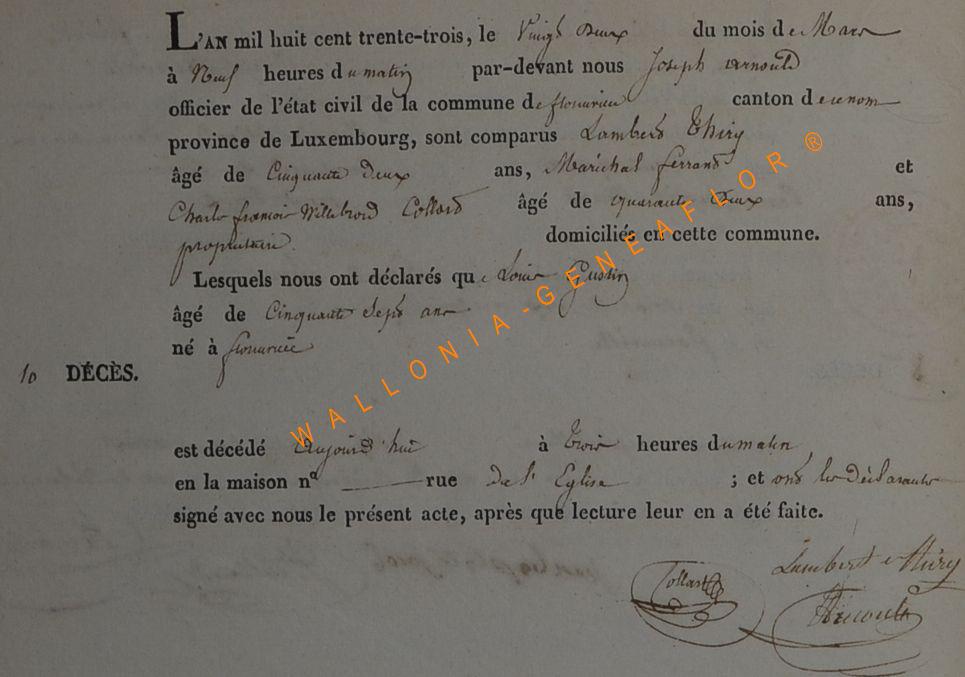 L'AN mil huit cent trente-trois, le Vingt Deux du mois de Mars
à Neuf heures du matin par-devant nous Joseph Arnould
officier de l'état civil de la commune de canton de
province de Luxembourg, sont comparus Lambert Thiry
âgé de Cinquante deux ans, Maréchal ferrand et
Charle françois Willibrord Collard âgé de quarante Deux ans,
propriétaire. domiciliés en cette commune.
Lesquels nous ont déclarés que Louis Gustin
âgé de Cinquante Sept ans
né à
10 DÉCÈS.
est décédé aujourd'hui à trois heures du matin
en la maison nº rue de l'Eglise ; et ont les déclarants
signé avec nous le présent acte, après que lecture leur en a été faite.
Lambert Thiry
Collard Arnould
WALLONIA-GENEAFLOR ®